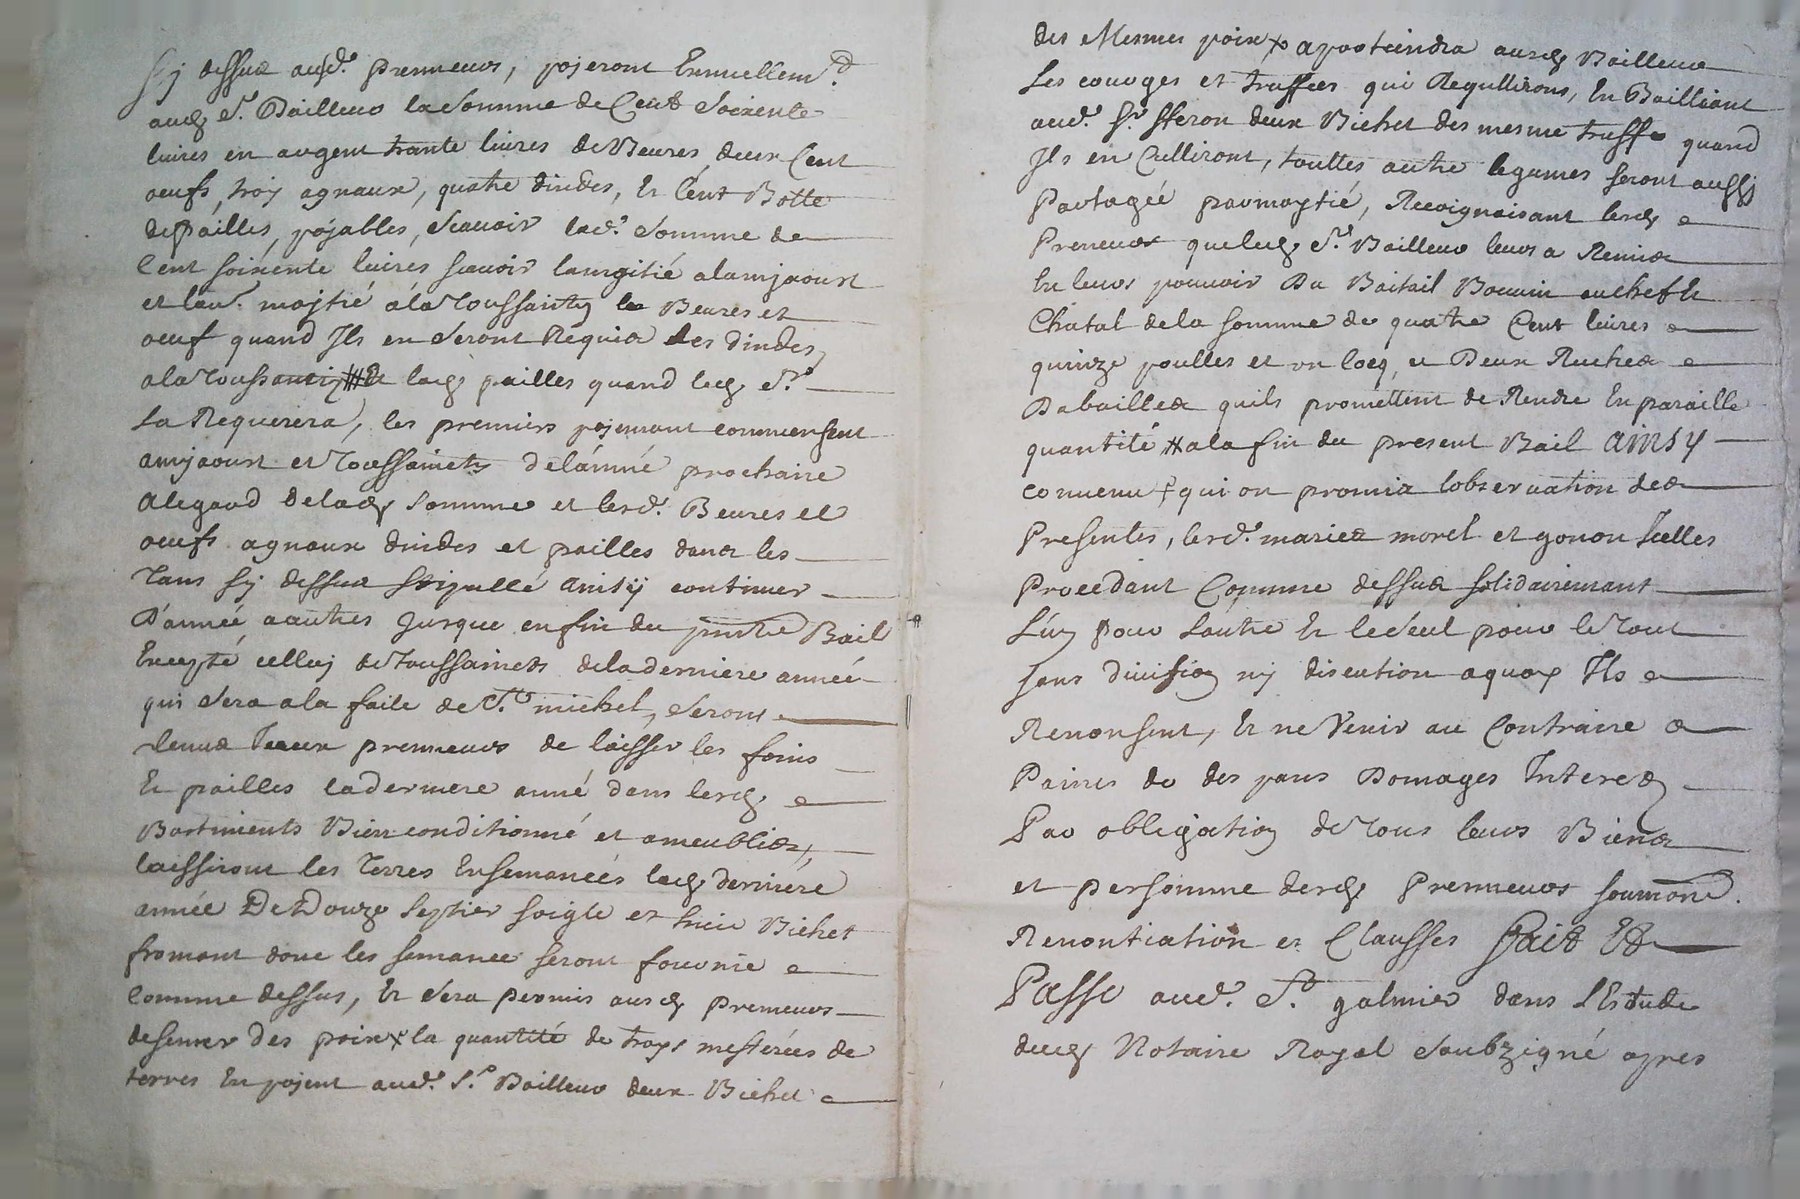 sy dessus ausd. prenneurs, payeront Ennuellemt.
audq Sr. Bailleur la Somme de Cent Soixente
livres en argent trante livres de Beures deux Cent
oeufs, troy agnaux, quatre dindes, Et Cent Botte
de pailles, payables, Scauoir lad. Somme de
Cent soixente livres scauoir la moitié alamjaoust
et laut. mojtié ála Toussainty le Beures et
oeuf quand Ils en Seront Requis les dindes,
ala Toussainty Et lasq pailles quand ledq Sr.
La Requerera, les premiers pajemant commensent
amjaoust et Toussaincts delánné prochaine
alegard deladq Somme et lesd. Beures et
oeufs agnaux dindes et pailles dans les
Tans sy dessus stipullé ainsy continuer
D'année aautres Jusque enfin du pnt Bail
Excepté celluy de Toussaincts dela derniere année
qui Sera ala faite de St. michel, Seront
tenus Iceux prenneurs de laisser les foins
Et pailles laderniere anné dans lesdq
Bartiments Bien conditionné et ameublies,
laissiront les Terres Ensemancés ladq derniére
année De Douze Septier soigle et huit Bichet
fromant dont les semance seront fournie
Comme dessus, Et Sera permis ausdq preneurs
desemer des poix la quantité de troys mesterées de
terres En pajent aud. Sr. Bailleur deux Bichet
des Mesmes poix apartiendra ausdq Bailleur
Les courges et truffees qui Requlliront, En Bailliant
aud. Sr. steron deux Bichet des mesme truffe quand
Ils en Culliront, touttes autre legumes seront aussy
Partagée parmoytié, Recoignaisant lesdq
Preneurs queledq Sr. Bailleur leurs a Remis
En leurs pouvoir Du Baitail Bouuin en chef Et
Chatal de la somme de quatre Cent livres
quinze poulles et un cocq, et Deux Ruches
Dabailles quils promettent de Rendre En paraille
quantité ala fin du present Bail ainsy
convenu qui on promis lobservation des
Presentes, lesd. maries morel et gonon Icelles
Procedant Comme dessus solidairemant
L'un pour Lautre Et le Seul pour le Tout
sans division ny discution aquoy Ils
Renonsent, Et ne Venir au Contraire a
Paines de des pans Domages Interes
Par obligation de Tous leurs Biens
et personne desdq Prenneurs soumons.
Renontiation et Clausses fait Et
Passé aud. St. galmier dans L'Estude
dudq Notaire Royal Soubzigné apres